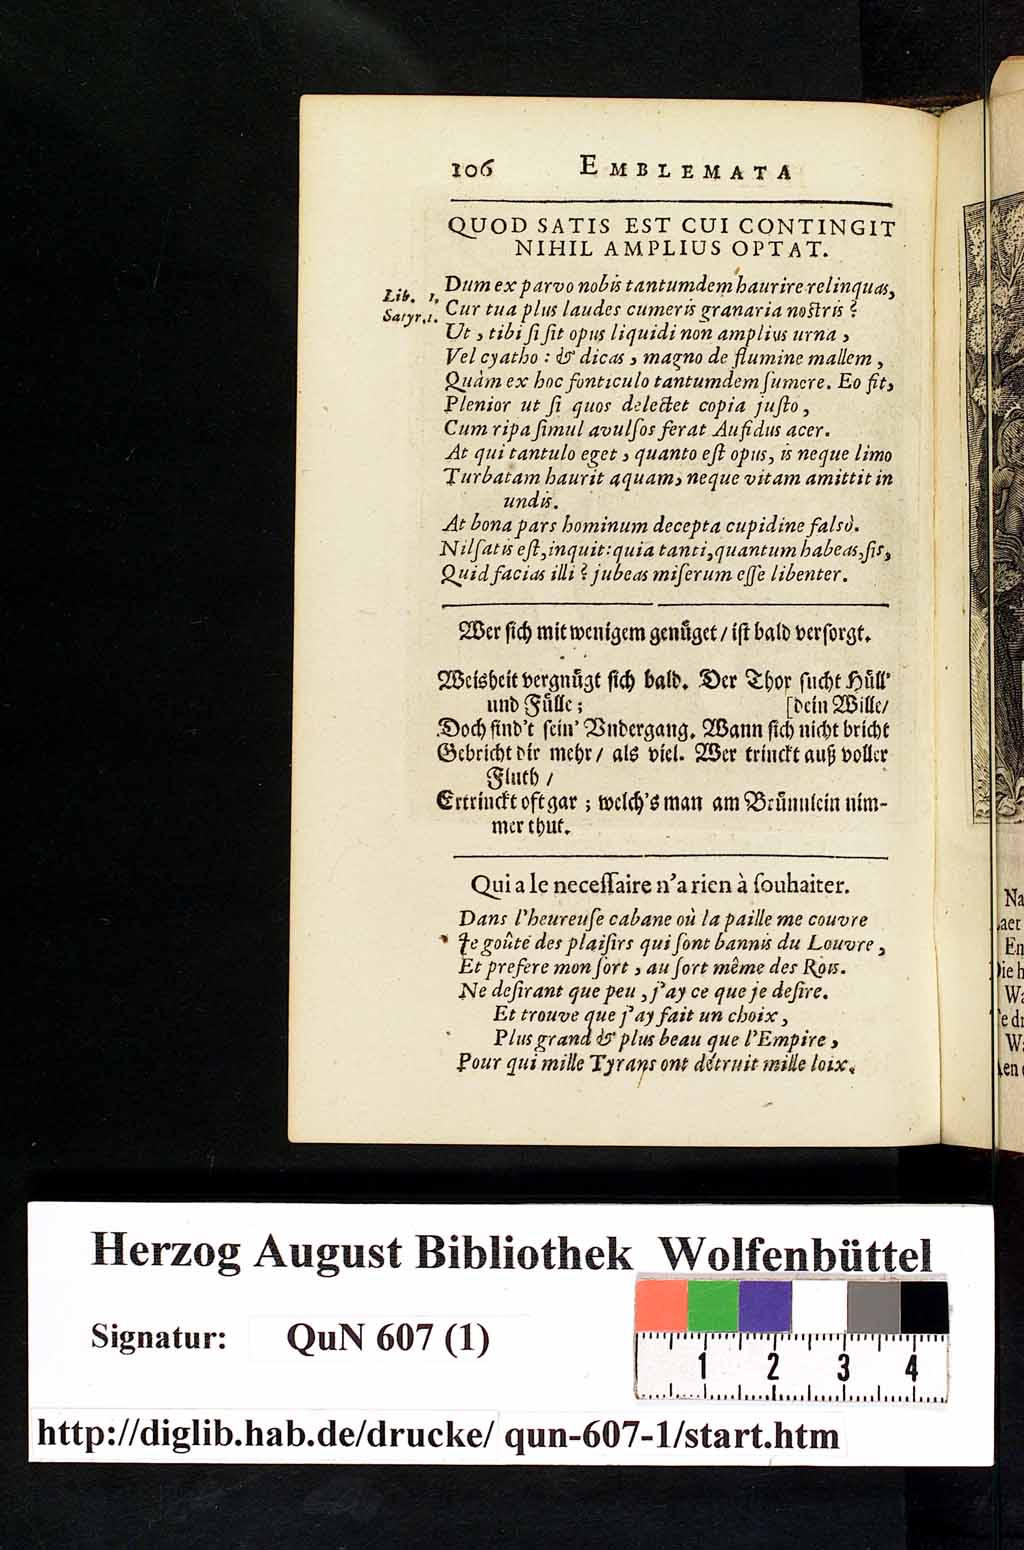 106 EMBLEMATA
QUOD SATIS EST CUI CONTINGIT
NIHIL AMPLIUS OPTAT.
Lib. 1,
Satyr.1.
Dum ex parvo nobis tantumdem haurire relinquas,
Cur tua plus laudes cumeris granaria nostris?
Ut, tibi si sit opus liquidi non amplius urna,
Vel cyatho: & dicas, magno de flumine mallem,
Quàm ex hoc fonticulo tantumdem sumere. Eo fit,
Plenior ut si quos delectet copia justo,
Cum ripa simul avulsos ferat Aufidus acer.
At qui tantulo eget, quanto est opus, is neque limo
Turbatam haurit aquam, neque vitam amittit in
undis.
At bona pars hominum decepta cupidine falsò.
Nil satis est, inquit: quia tanti, quantum habeas, sis,
Quid facias illi? jubeas miserum esse libenter.
Wer sich mit wenigem genüget / ist bald versorgt.
Weisheit vergnügt sich bald. Der Thor sucht Hüll'
und Fülle; [dein Wille/
Doch sind't sein' Vndergang. Wann sich nicht bricht
Gebricht dir mehr / als viel. Wer trinckt auß voller
Fluth /
Ertrinckt oft gar ; welch's man am Brünnlein nim-
mer thut.
Qui a le necessaire n'a rien à souhaiter.
Dans l'heureuse cabane où la paille me couvre
Je goûte des plaisirs qui sont bannis du Louvre,
Et prefere mon sort, au sort même des Rois.
Ne desirant que peu, j'ay ce que je desire.
Et trouve que j'ay fait un choix,
Plus grand & plus beau que l'Empire,
Pour qui mille Tyrans ont détruit mille loix.
Na
En
Wa
Herzog August Bibliothek Wolfenbüttel
Signatur: QuN 607 (1)
1 2 3 4
http://diglib.hab.de/drucke/ qun-607-1/start.htm